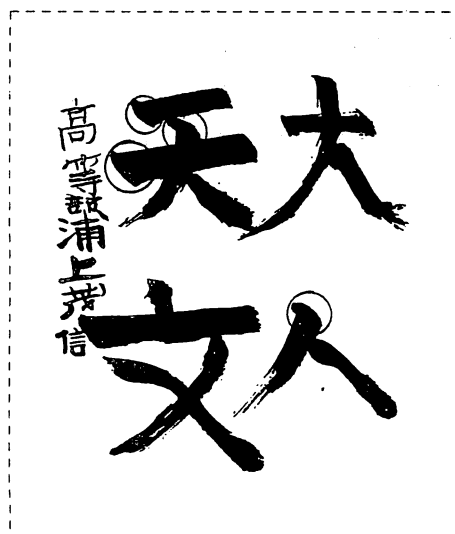 大人
天文
高等部浦上茂信